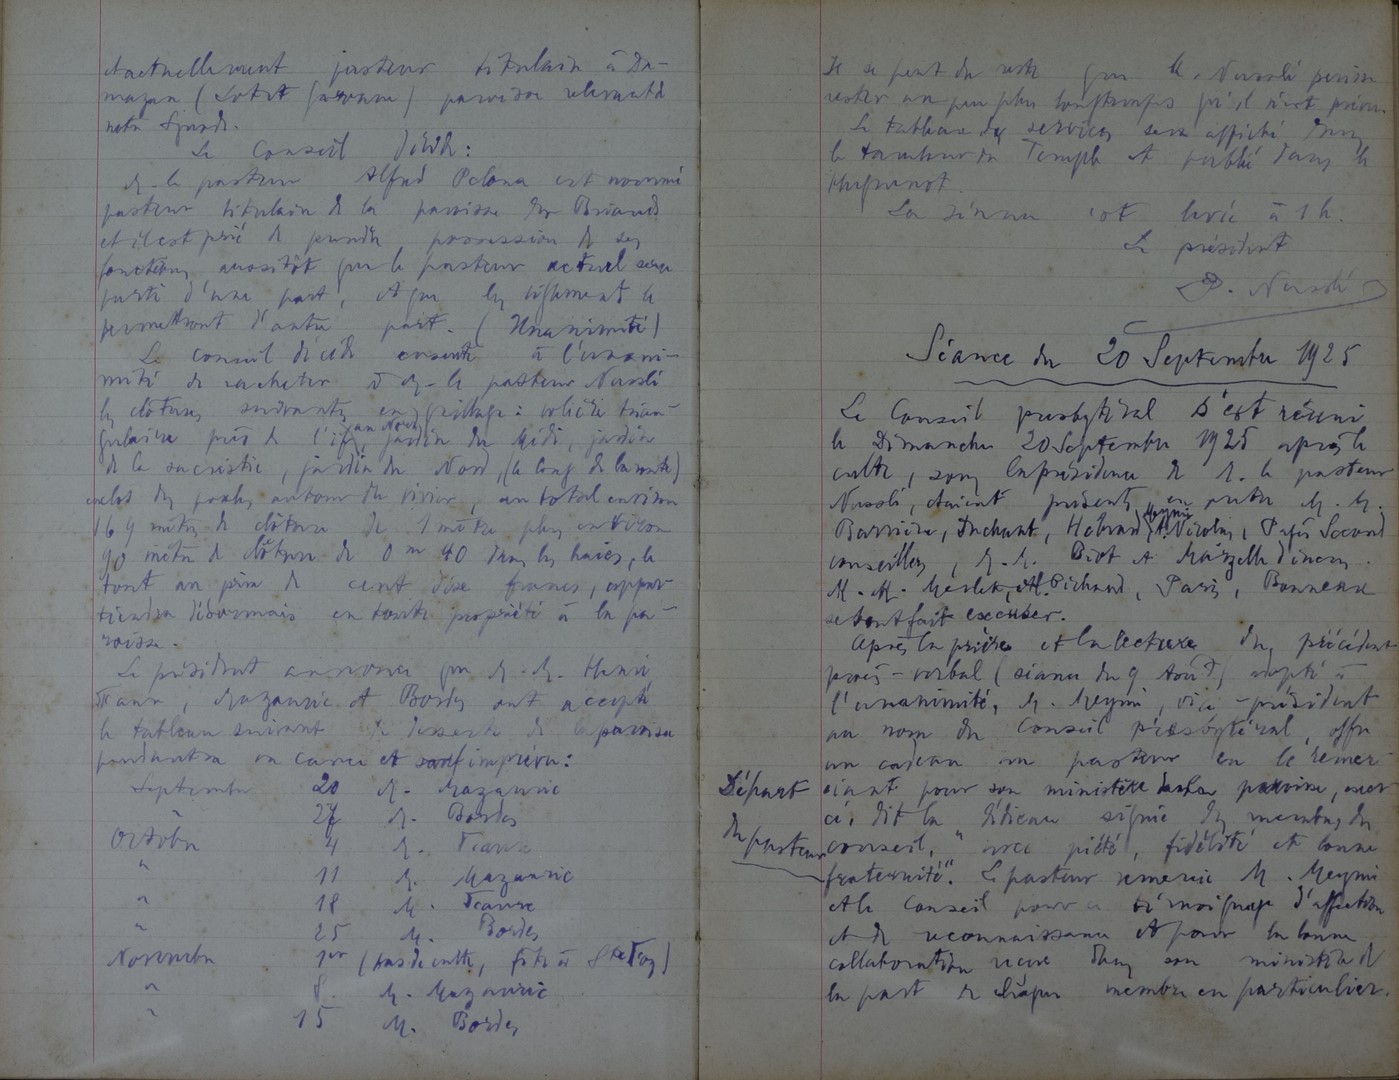 et actuellement pasteur titulaire à Da-
mazan (Lot et Garonne) paroisse
Le Conseil décide:
M. le pasteur Alfred Pelona est nommé
pasteur titulaire de la paroisse des Briands
et il est prié de prendre possession de ses
fonctions aussitôt que le pasteur actuel sera
parti d'une part, et que les règlements le
permettront d'autre part. (Unanimité)
Le Conseil décide ensuite à l'unani-
mité de racheter à M. le pasteur Nussli
les clôtures suivantes en grillage: volière trian-
gulaire près de l'if au Nord, jardin du Midi, jardin
de la sacristie, jardin du Nord, (le long de la route)
enclos des poules autour du vivier, au total environ
169 mètres de clôture de 1 mètre plus environ
90 mètres de clôture de 0 m 40 dans les haies, le
tout au prix de cent dix francs, appar-
tiendra désormais en toute propriété à la pa-
roisse.
Le président annonce que M. M. Henri
Faure, Mazauric et Bordes ont accepté
le tableau suivant de desserte de la paroisse
pendant sa vacance et sauf imprévu:
Septembre 20 M. Mazauric
" 27 M. Bordes
Octobre 4 M. Faure
" 11 M. Mazauric
" 18 M. Faure
" 25 M. Bordes
Novembre 1er (pas de culte, fête à Ste Foy)
" 8. M. Mazauric
" 15 M. Bordes
Il se peut du reste que M. Nussli puisse
rester un peu plus longtemps qu'il n'est prévu.
Le tableau des services sera affiché dans
le tambour du Temple et publié dans le
Huguenot.
La séance est levée à 1 h.
Le président
D. Nussli
Séance du 20 Septembre 1925
Le Conseil presbytéral s'est réuni
le Dimanche 20 Septembre 1925 après le
culte, sous la présidence de M. le pasteur
Nussli, étaient présents, en outre M. M.
Barrière, Duchant, Hébrard, Meymi, A. Nicolas, Pagès Second
conseillers, M. M. Biot et Marzelle diacres.
M. M. Merlet, M. Pichard, Paris, Bonneau
se sont fait excuser.
Après la prière et la lecture du précédent
procès-verbal (séance du 9 Août) adopté à
l'unanimité, M. Meymi, vice-président
au nom du Conseil Presbytéral, offre
un cadeau au pasteur en le remer-
ciant pour son ministère dans la paroisse, exer
cé, dit la dédicace signée des membres du
conseil, "avec piété, fidélité et bonne
fraternité". Le pasteur remercie M. Meymi
et le Conseil pour ce témoignage d'affection
et de reconnaissance et pour la bonne
collaboration reçue dans son ministère de
la part de chaque membre en particulier.
Départ
du pasteur